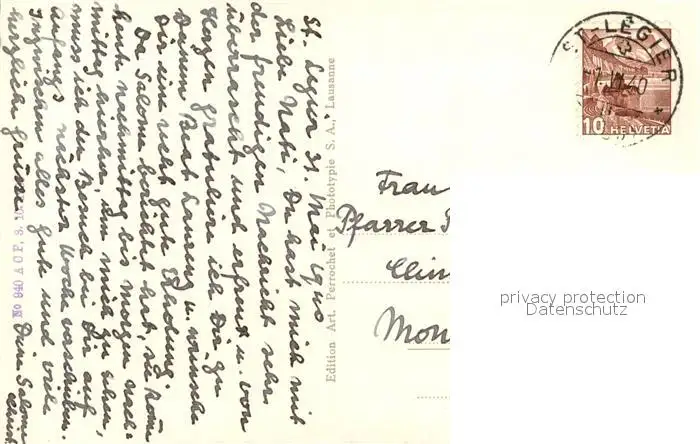 St. Légier 31. Mai 1940
Liebe Nati, Du hast mich mit
der freudigen Nachricht sehr
überrascht und erfreut u. von
Herzen gratuliere ich Dir zu
Deinem u. wünsche
Dir eine recht gute Erholung.
Da Salome berichtet hat, sie
heute nachmittag bis morgen nach-
mittag hierher, um mich zu sehen,
muss ich den Besuch bei Dir auf
Anfang nächster Woche verschieben.
Inzwischen alles Gute und viele
herzliche Grüsse
Deine Salome
No 940 A C F, 3.
Edition Art. Perrochet et Phototypie S. A., Lausanne
ST-LÉGIER
40
10 HELVETIA
Frau
Pfarrer
Clin
Mon
privacy protection
Datenschutz